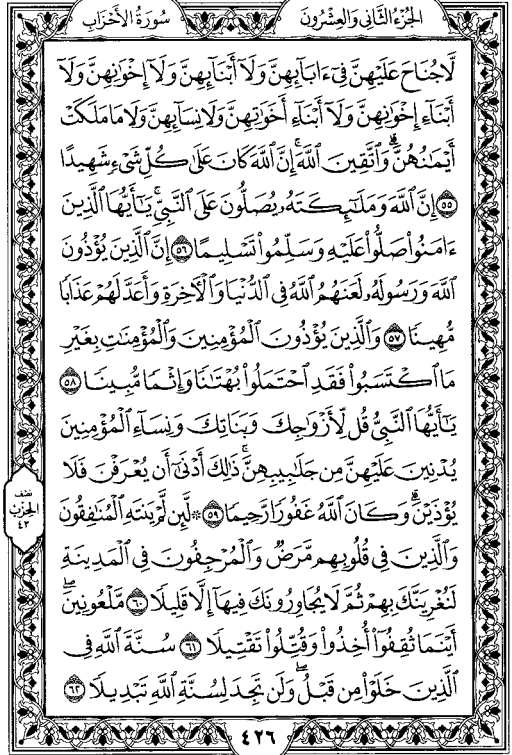 الجزء الثاني والعشرون
سورة الأحزاب
لَّا جُنَاحَ عَلَيْهِنَّ فِىٓ ءَابَآئِهِنَّ وَلَآ أَبْنَآئِهِنَّ وَلَآ إِخْوَٰنِهِنَّ وَلَآ
أَبْنَآءِ إِخْوَٰنِهِنَّ وَلَآ أَبْنَآءِ أَخَوَٰتِهِنَّ وَلَا نِسَآئِهِنَّ وَلَا مَا مَلَكَتْ
أَيْمَٰنُهُنَّ ۗ وَٱتَّقِينَ ٱللَّهَ ۚ إِنَّ ٱللَّهَ كَانَ عَلَىٰ كُلِّ شَىْءٍ شَهِيدًا
٥٥ إِنَّ ٱللَّهَ وَمَلَٰٓئِكَتَهُۥ يُصَلُّونَ عَلَى ٱلنَّبِىِّ ۚ يَٰٓأَيُّهَا ٱلَّذِينَ
ءَامَنُوا۟ صَلُّوا۟ عَلَيْهِ وَسَلِّمُوا۟ تَسْلِيمًا ٥٦ إِنَّ ٱلَّذِينَ يُؤْذُونَ
ٱللَّهَ وَرَسُولَهُۥ لَعَنَهُمُ ٱللَّهُ فِى ٱلدُّنْيَا وَٱلْءَاخِرَةِ وَأَعَدَّ لَهُمْ عَذَابًا
مُّهِينًا ٥٧ وَٱلَّذِينَ يُؤْذُونَ ٱلْمُؤْمِنِينَ وَٱلْمُؤْمِنَٰتِ بِغَيْرِ
مَا ٱكْتَسَبُوا۟ فَقَدِ ٱحْتَمَلُوا۟ بُهْتَٰنًا وَإِثْمًا مُّبِينًا ٥٨
يَٰٓأَيُّهَا ٱلنَّبِىُّ قُل لِّأَزْوَٰجِكَ وَبَنَاتِكَ وَنِسَآءِ ٱلْمُؤْمِنِينَ
يُدْنِينَ عَلَيْهِنَّ مِن جَلَٰبِيبِهِنَّ ۚ ذَٰلِكَ أَدْنَىٰٓ أَن يُعْرَفْنَ فَلَا
يُؤْذَيْنَ ۗ وَكَانَ ٱللَّهُ غَفُورًا رَّحِيمًا ٥٩ ۞ لَّئِن لَّمْ يَنتَهِ ٱلْمُنَٰفِقُونَ
وَٱلَّذِينَ فِى قُلُوبِهِم مَّرَضٌ وَٱلْمُرْجِفُونَ فِى ٱلْمَدِينَةِ
لَنُغْرِيَنَّكَ بِهِمْ ثُمَّ لَا يُجَاوِرُونَكَ فِيهَآ إِلَّا قَلِيلًا ٦٠ مَّلْعُونِينَ ۖ
أَيْنَمَا ثُقِفُوٓا۟ أُخِذُوا۟ وَقُتِّلُوا۟ تَقْتِيلًا ٦١ سُنَّةَ ٱللَّهِ فِى
ٱلَّذِينَ خَلَوْا۟ مِن قَبْلُ ۖ وَلَن تَجِدَ لِسُنَّةِ ٱللَّهِ تَبْدِيلًا ٦٢
نصف
الحزب
٤٣
٤٢٦